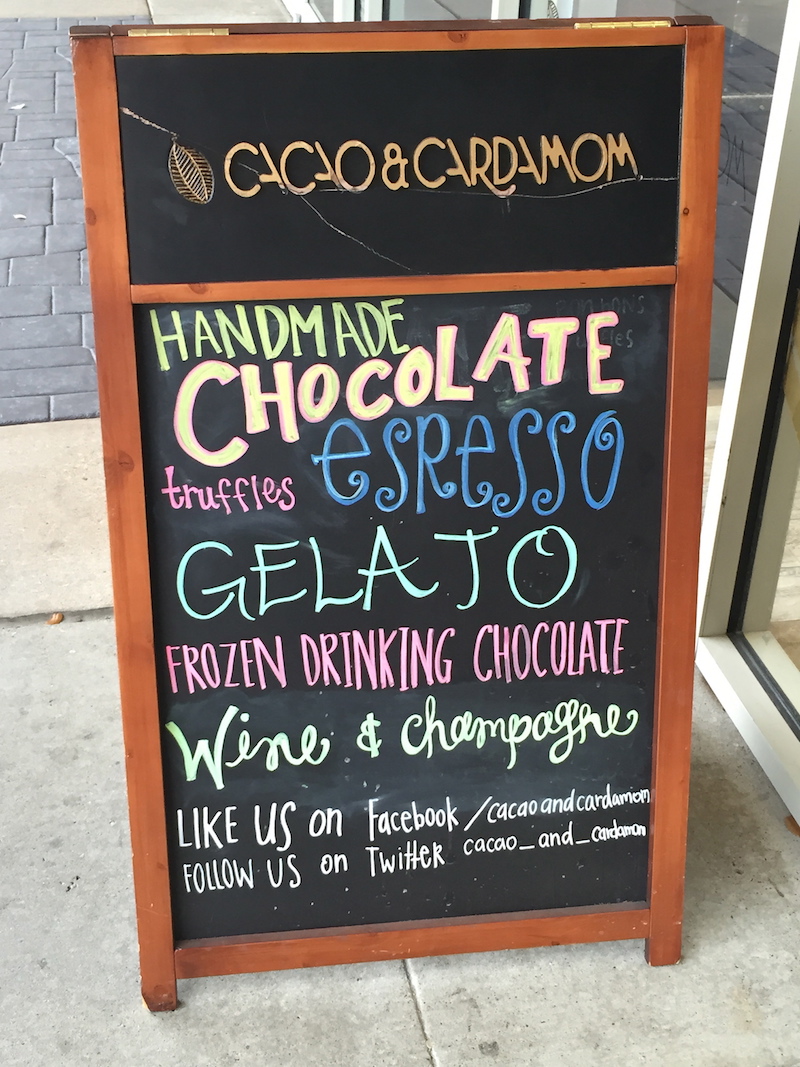 CACAO & CARDAMOM
HANDMADE
CHOCOLATE
truffles
espresso
GELATO
FROZEN DRINKING CHOCOLATE
Wine & champagne
LIKE US on Facebook /cacaoandcardamom
FOLLOW US on Twitter cacao_and_cardamom